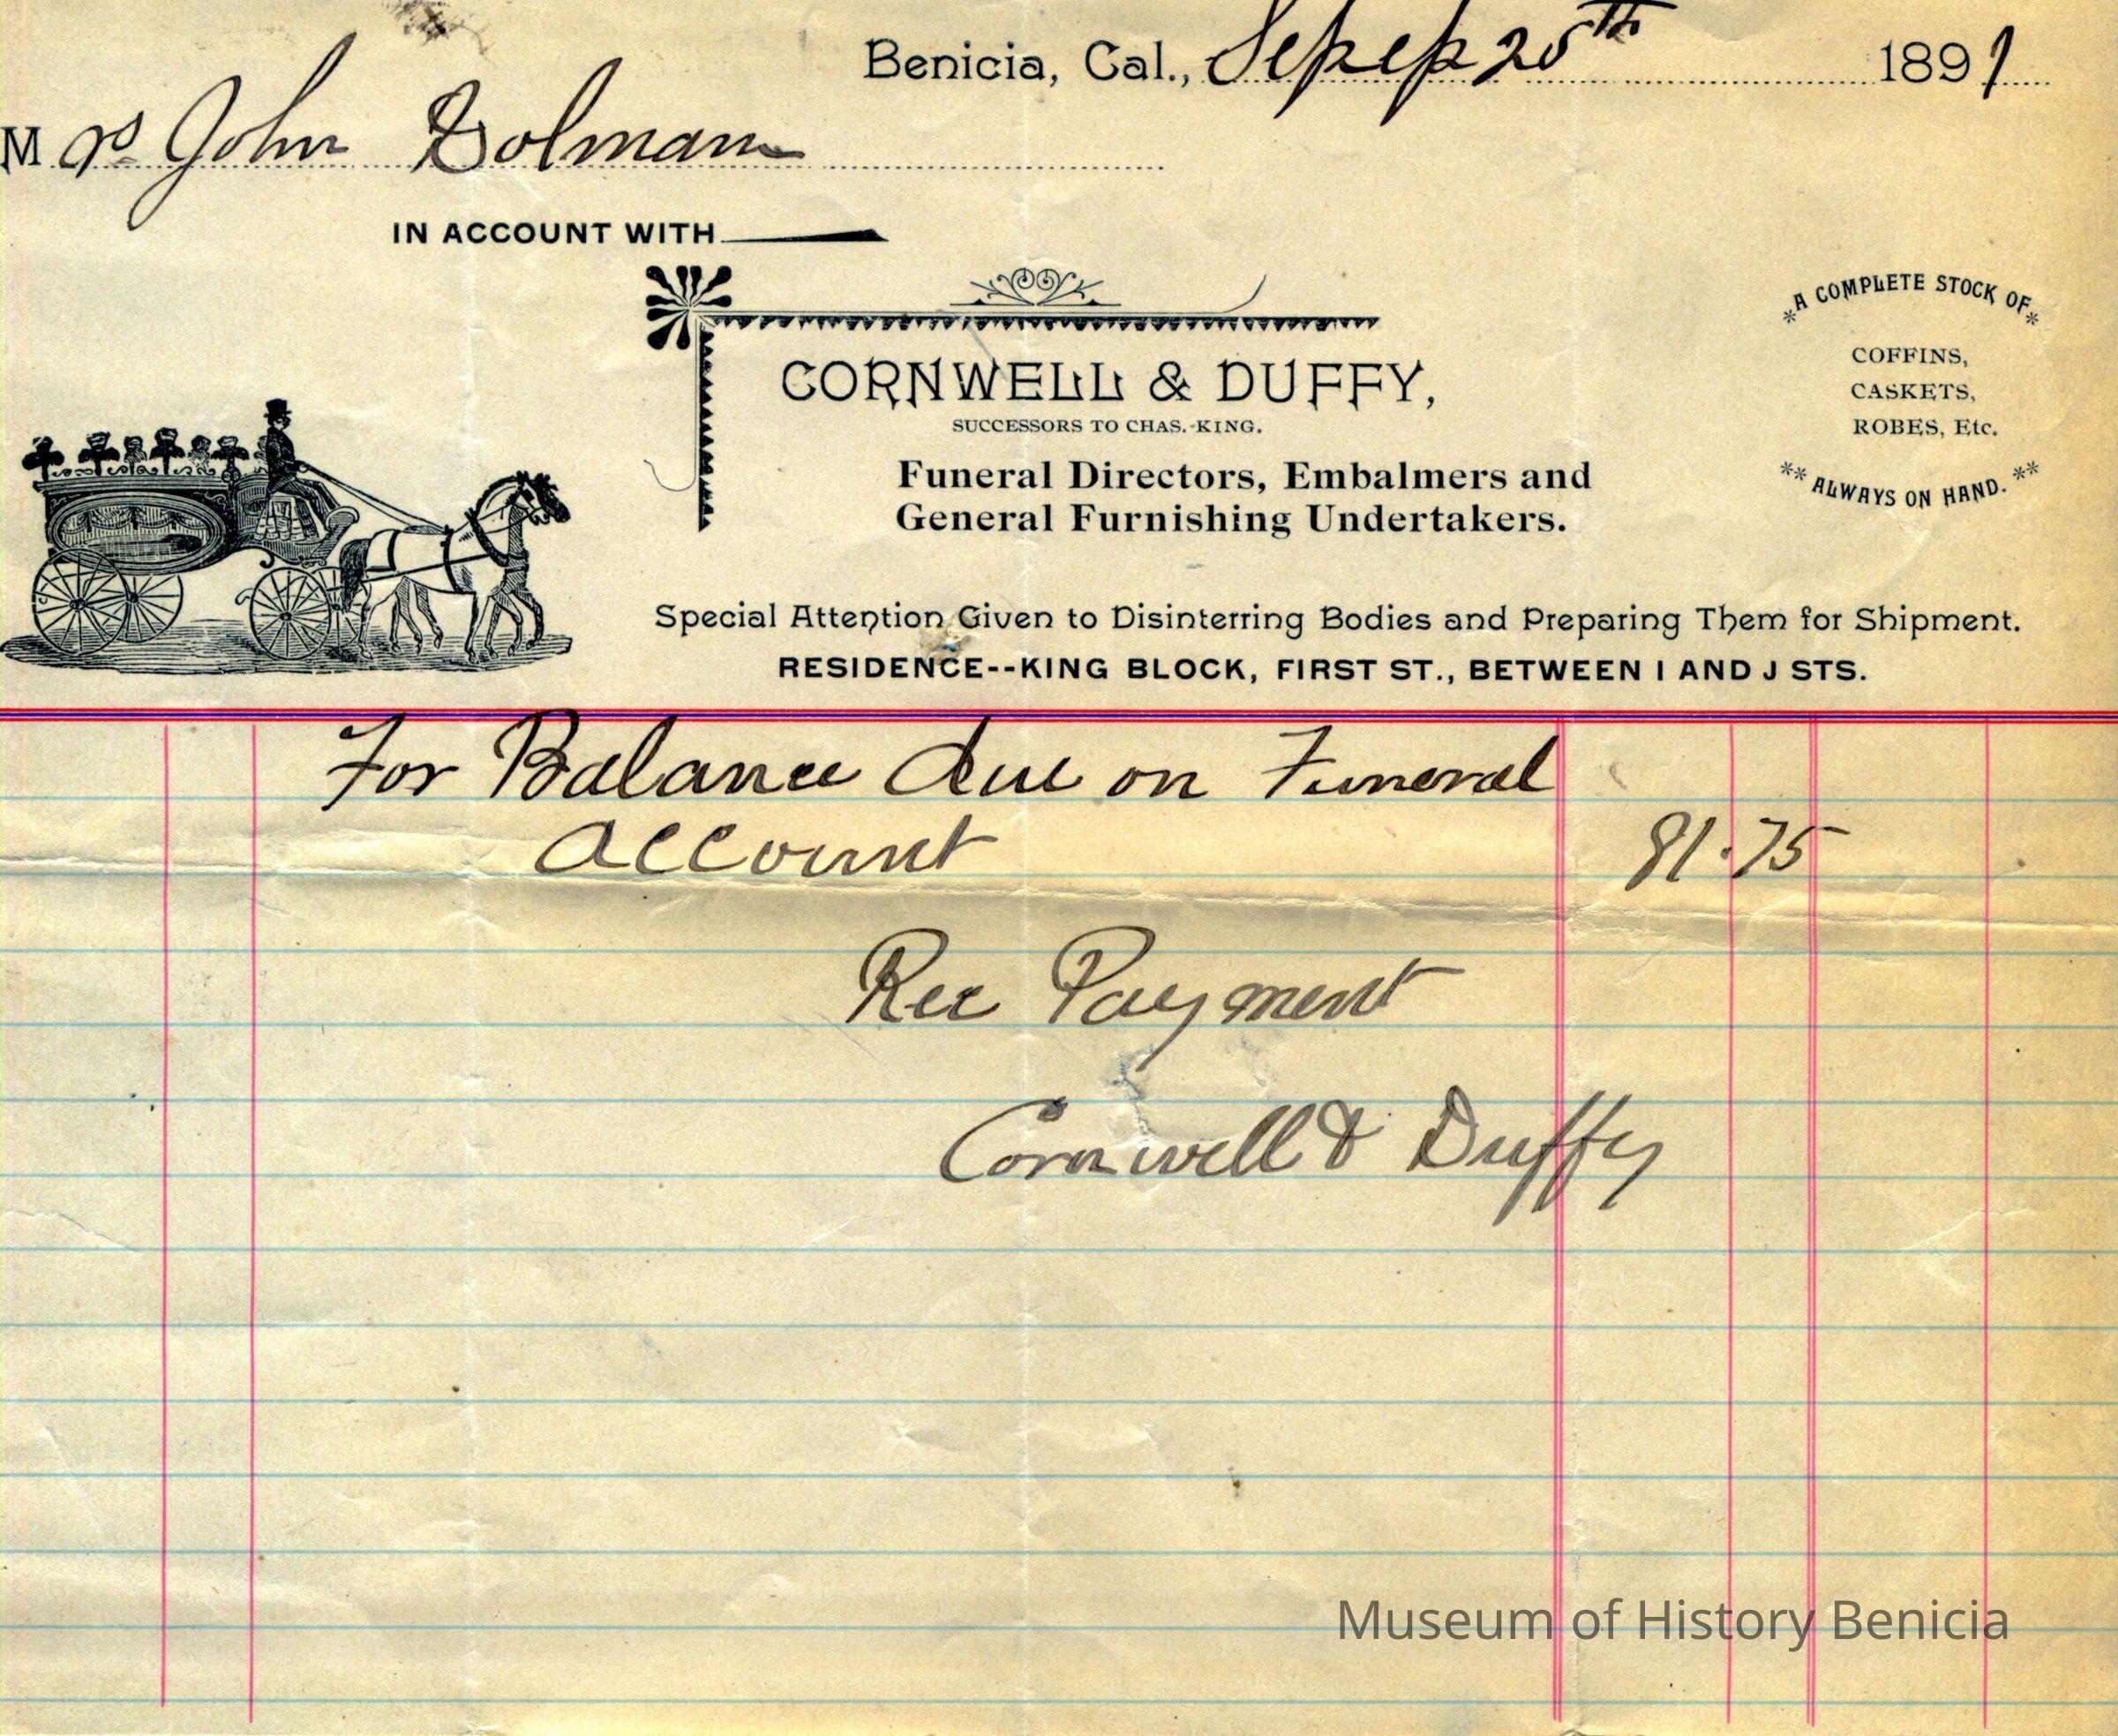 Benicia, Cal., Sepep 25th 1891
Mrs John Dolman
IN ACCOUNT WITH
A COMPLETE STOCK OF
COFFINS,
CASKETS,
ROBES, Etc.
ALWAYS ON HAND.
CORNWELL & DUFFY,
SUCCESSORS TO CHAS. KING.
Funeral Directors, Embalmers and
General Furnishing Undertakers.
Special Attention Given to Disinterring Bodies and Preparing Them for Shipment.
RESIDENCE--KING BLOCK, FIRST ST., BETWEEN I AND J STS.
For Balance due on Funeral
account 81.75
Rec Payment
Cornwell & Duffy
Museum of History Benicia